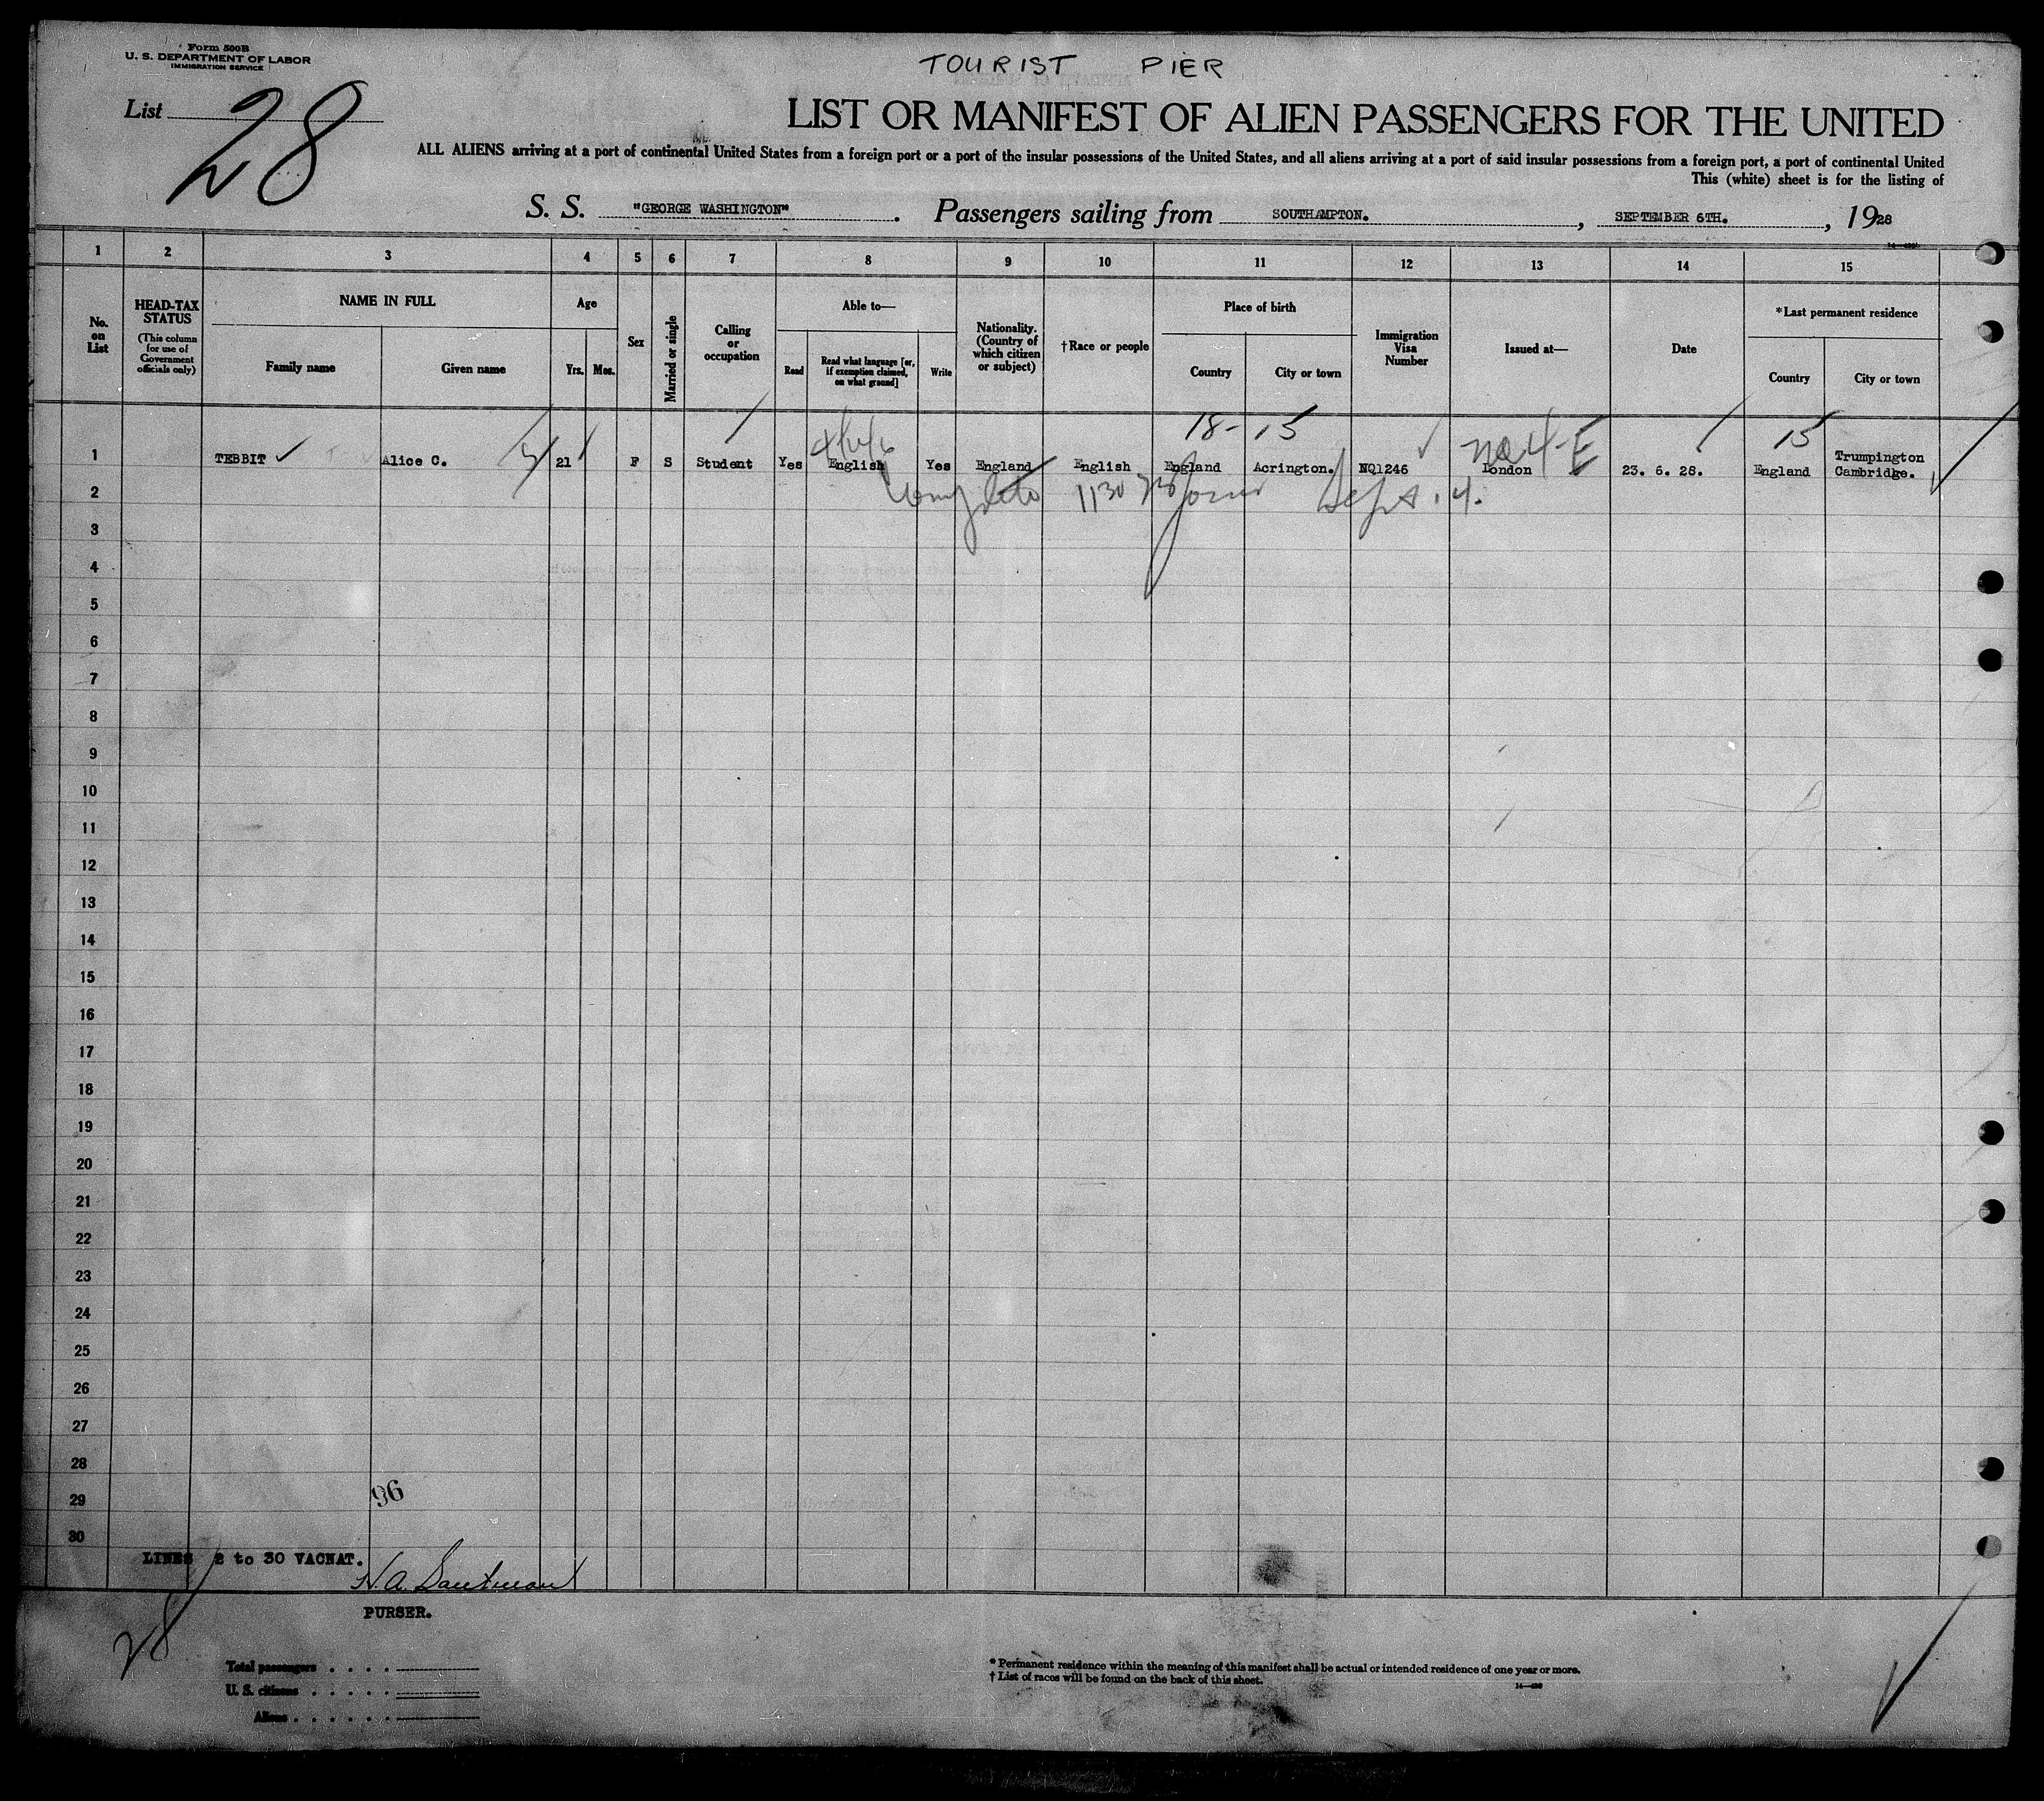 Form 500B
U. S. DEPARTMENT OF LABOR
IMMIGRATION SERVICE
TOURIST PIER
List 28
LIST OR MANIFEST OF ALIEN PASSENGERS FOR THE UNITED
ALL ALIENS arriving at a port of continental United States from a foreign port or a port of the insular possessions of the United States, and all aliens arriving at a port of said insular possessions from a foreign port, a port of continental United
This (white) sheet is for the listing of
S. S. "GEORGE WASHINGTON". Passengers sailing from SOUTHAMPTON., SEPTEMBER 6TH., 1928
1 2 3 4 5 6 7 8 9 10 11 12 13 14 15
No. on List
HEAD-TAX STATUS
(This column for use of Government officials only)
NAME IN FULL
Family name
Given name
Age
Yrs.
Mos.
Sex
Married or single
Calling or occupation
Able to—
Read
Read what language [or, if exemption claimed, on what ground]
Write
Nationality. (Country of which citizen or subject)
†Race or people
Place of birth
Country
City or town
Immigration Visa Number
Issued at—
Date
*Last permanent residence
Country
City or town
18- 15 No 4-E 15
1 TEBBIT ✓ Alice C. 21 F S Student Yes English Yes England English England Acrington. NQ1246 London 23. 6. 28. England Trumpington Cambridge.
2 1130 Sept. 4.
3
4
5
6
7
8
9
10
11
12
13
14
15
16
17
18
19
20
21
22
23
24
25
26
27
28
29
96
30
LINES 2 to 30 VACNAT.
PURSER.
28
Total passengers
U. S. citizens
Aliens
* Permanent residence within the meaning of this manifest shall be actual or intended residence of one year or more.
† List of races will be found on the back of this sheet.